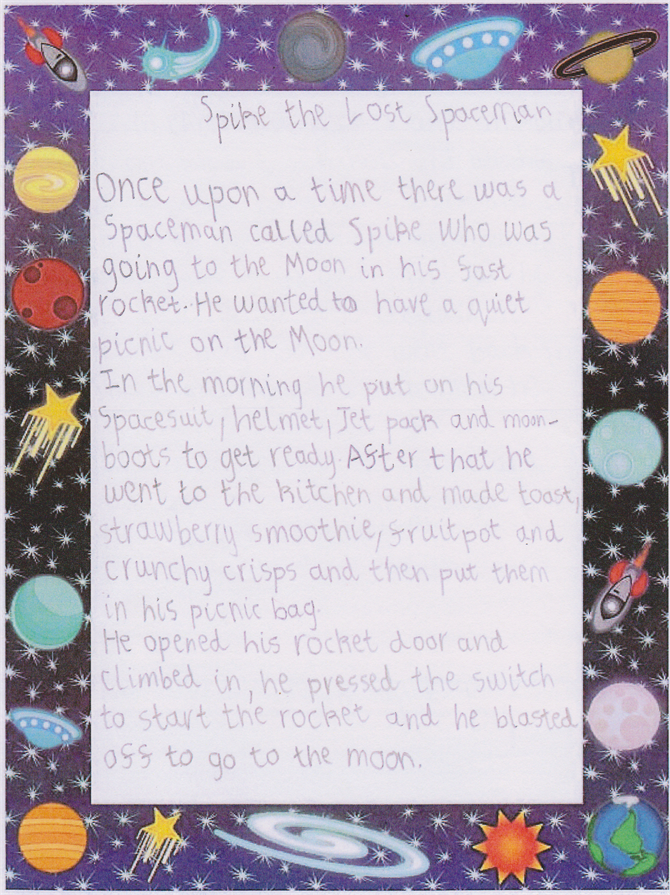 Spike the Lost Spaceman
Once upon a time there was a
Spaceman called Spike Who was
going to the Moon in his fast
rocket. He wanted to have a quiet
picnic on the Moon.
In the morning he put on his
Spacesuit, helmet, Jet pack and moon-
boots to get ready. After that he
went to the kitchen and made toast,
strawberry smoothie, fruitpot and
crunchy crisps and then put them
in his picnic bag.
He opened his rocket door and
climbed in, he pressed the switch
to start the rocket and he blasted
off to go to the moon.